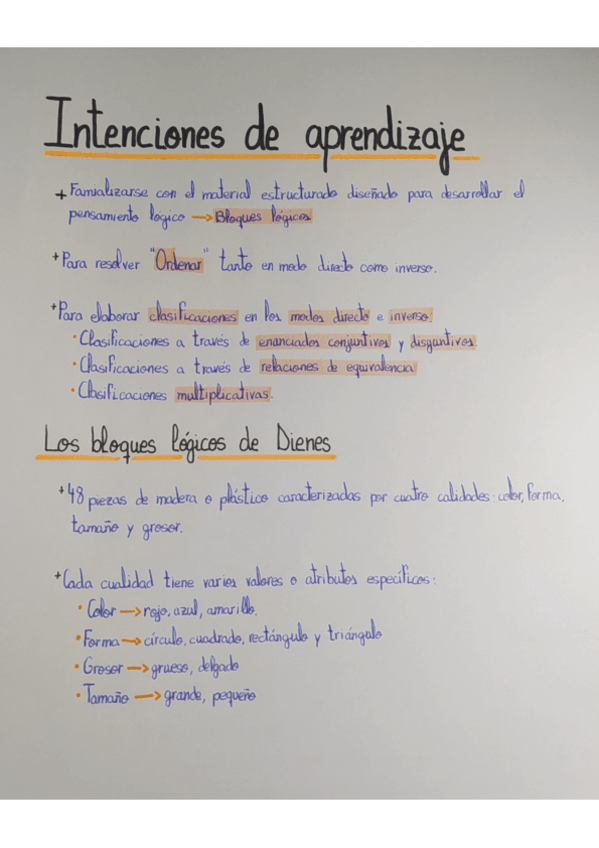 Intenciones de aprendizaje
+ Famialializarse con el material estructurado diseñado para desarrollar el
pensamiento lógico → Bloques lógicos
+ Para resolver "Ordenar" tanto en modo directo como inverso.
+ Para elaborar clasificaciones en los modos directo e inverso:
• Clasificaciones a través de enunciados conjuntivos y disyuntivos.
• Clasificaciones a través de relaciones de equivalencia
• Clasificaciones multiplicativas.
Los bloques lógicos de Dienes
+ 48 piezas de madera o plástico caracterizadas por cuatro calidades: color, forma,
tamaño y grosor.
+ Cada cualidad tiene varios valores o atributos específicos:
• Color → rojo, azul, amarillo.
• Forma → círculo, cuadrado, rectángulo y triángulo
• Grosor → grueso, delgado
• Tamaño → grande, pequeño